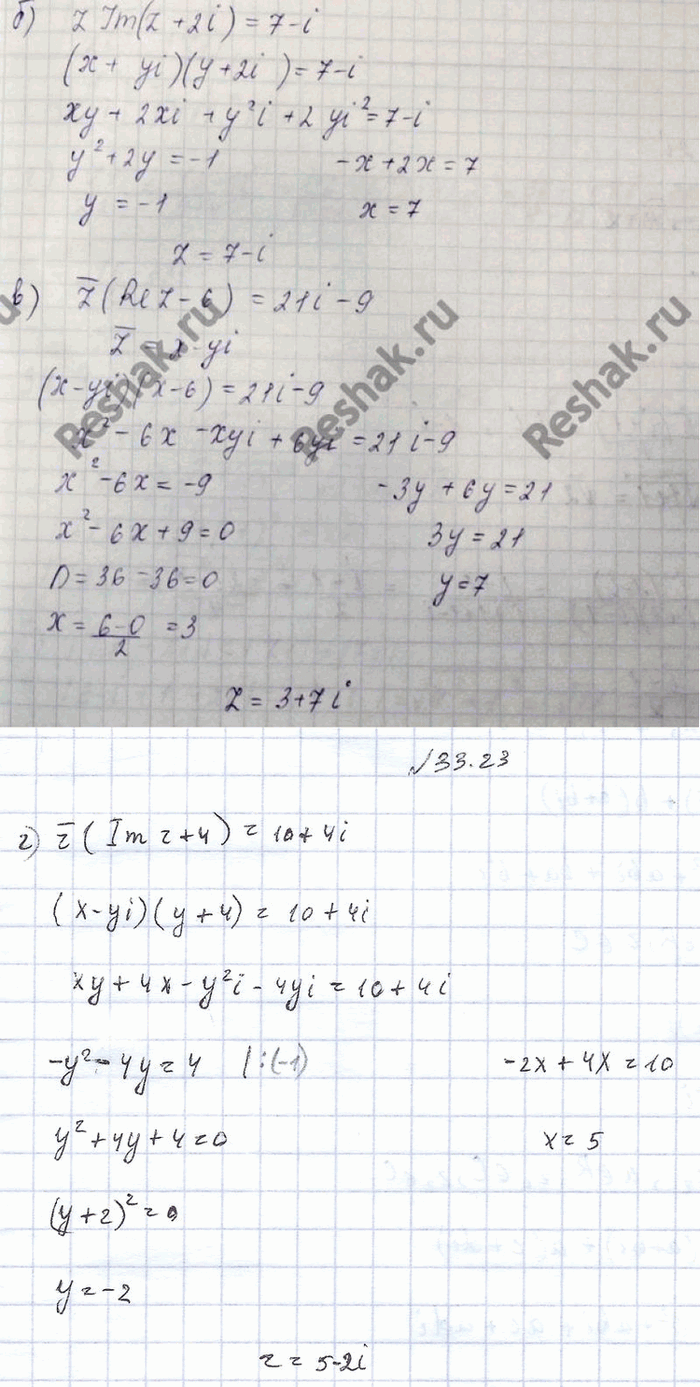 б) z Im(z + 2i) = 7-i
(x + yi)(y+2i) = 7-i
xy + 2xi + y²i + 2yi² = 7-i
y² + 2y = -1 -x + 2x = 7
y = -1 x = 7
z = 7-i
в) z̅ (Re z - 6) = 21i - 9
z̅ = x - yi
(x-yi)(x-6) = 21i-9
x² - 6x - xyi + 6yi = 21i-9
x² - 6x = -9 -3y + 6y = 21
x² - 6x + 9 = 0 3y = 21
D = 36 - 36 = 0 y = 7
x = (6-0)/2 = 3
z = 3+7i
Reshak.ru
Reshak.ru
Reshak.ru
√33.23
г) z̅ ( Im z + 4 ) = 10 + 4i
(x-yi)(y+4) = 10 + 4i
xy + 4x - y²i - 4yi = 10 + 4i
-y² - 4y = 4 |:(-1) -2x + 4x = 10
y² + 4y + 4 = 0 x = 5
(y+2)² = 0
y = -2
z = 5-2i